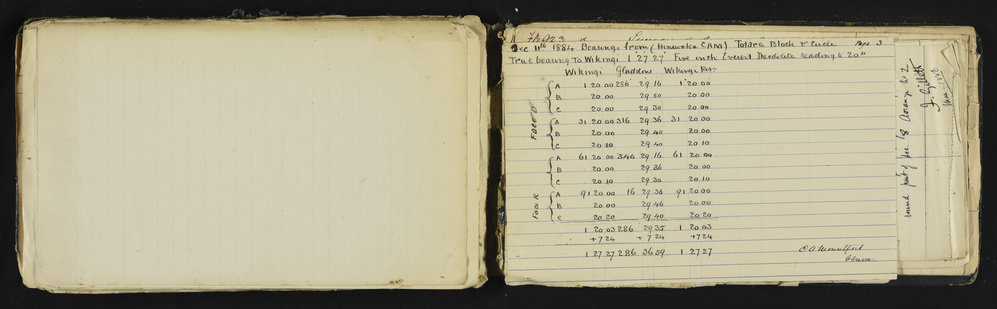 Dec 11th 1884 Bearings from (Hinuwaka CHAA) Totara Block & Circle Page 3
True bearing to Wikingi 1 27 27 Five inch Everest Theodolite reading to 20"
Wikingi Gladstone Wikingi Rep.
A 1 20 00 286 29 16 1 20 00
B 20 00 29 50 20 00
C 20 00 29 30 20 00
Face
A 31 20 00 316 29 36 31 20 00
B 20 00 29 40 20 00
C 20 20 29 40 20 10
A 61 20 00 346 29 16 61 20 00
B 20 00 29 36 20 00
C 20 10 29 30 20 10
Face R
A 91 20 00 16 29 36 91 20 00
B 20 00 29 46 20 00
C 20 20 29 40 20 20
1 20 03 286 29 35 1 20 03
+7 24 +7 24 +7 24
1 27 27 286 36 59 1 27 27
part of